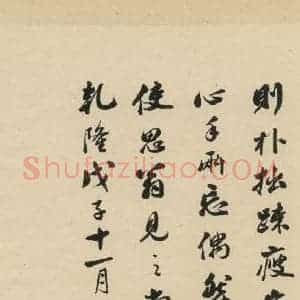 則朴拙疎瘦
心手兩忘偶然
使思翁見之
乾隆戊子十一月
Shufaziliao.COM